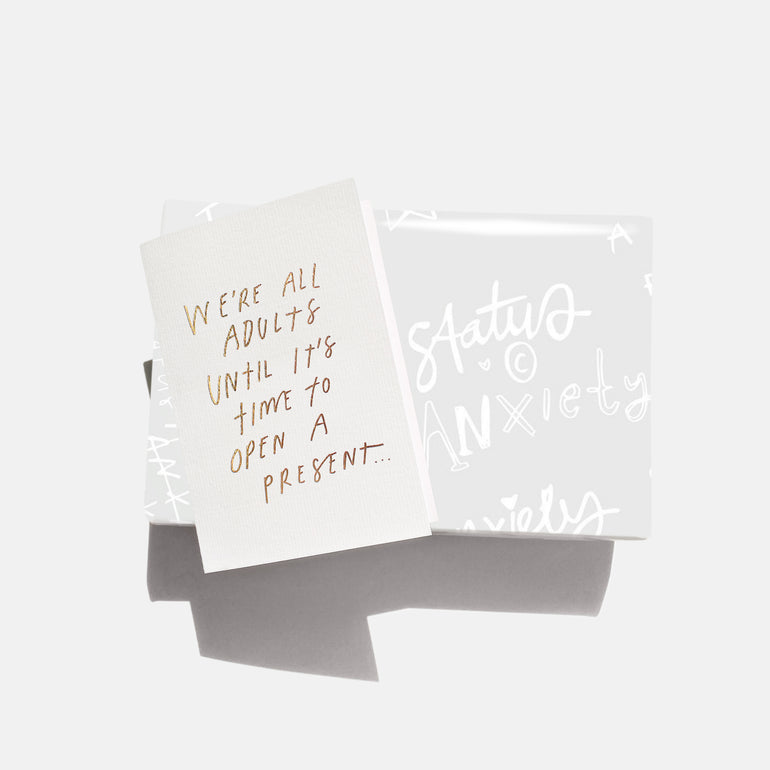 WE'RE ALL
ADULTS
UNTIL IT'S
TIME TO
OPEN A
PRESENT...
Status
©
ANXiety
Anxiety